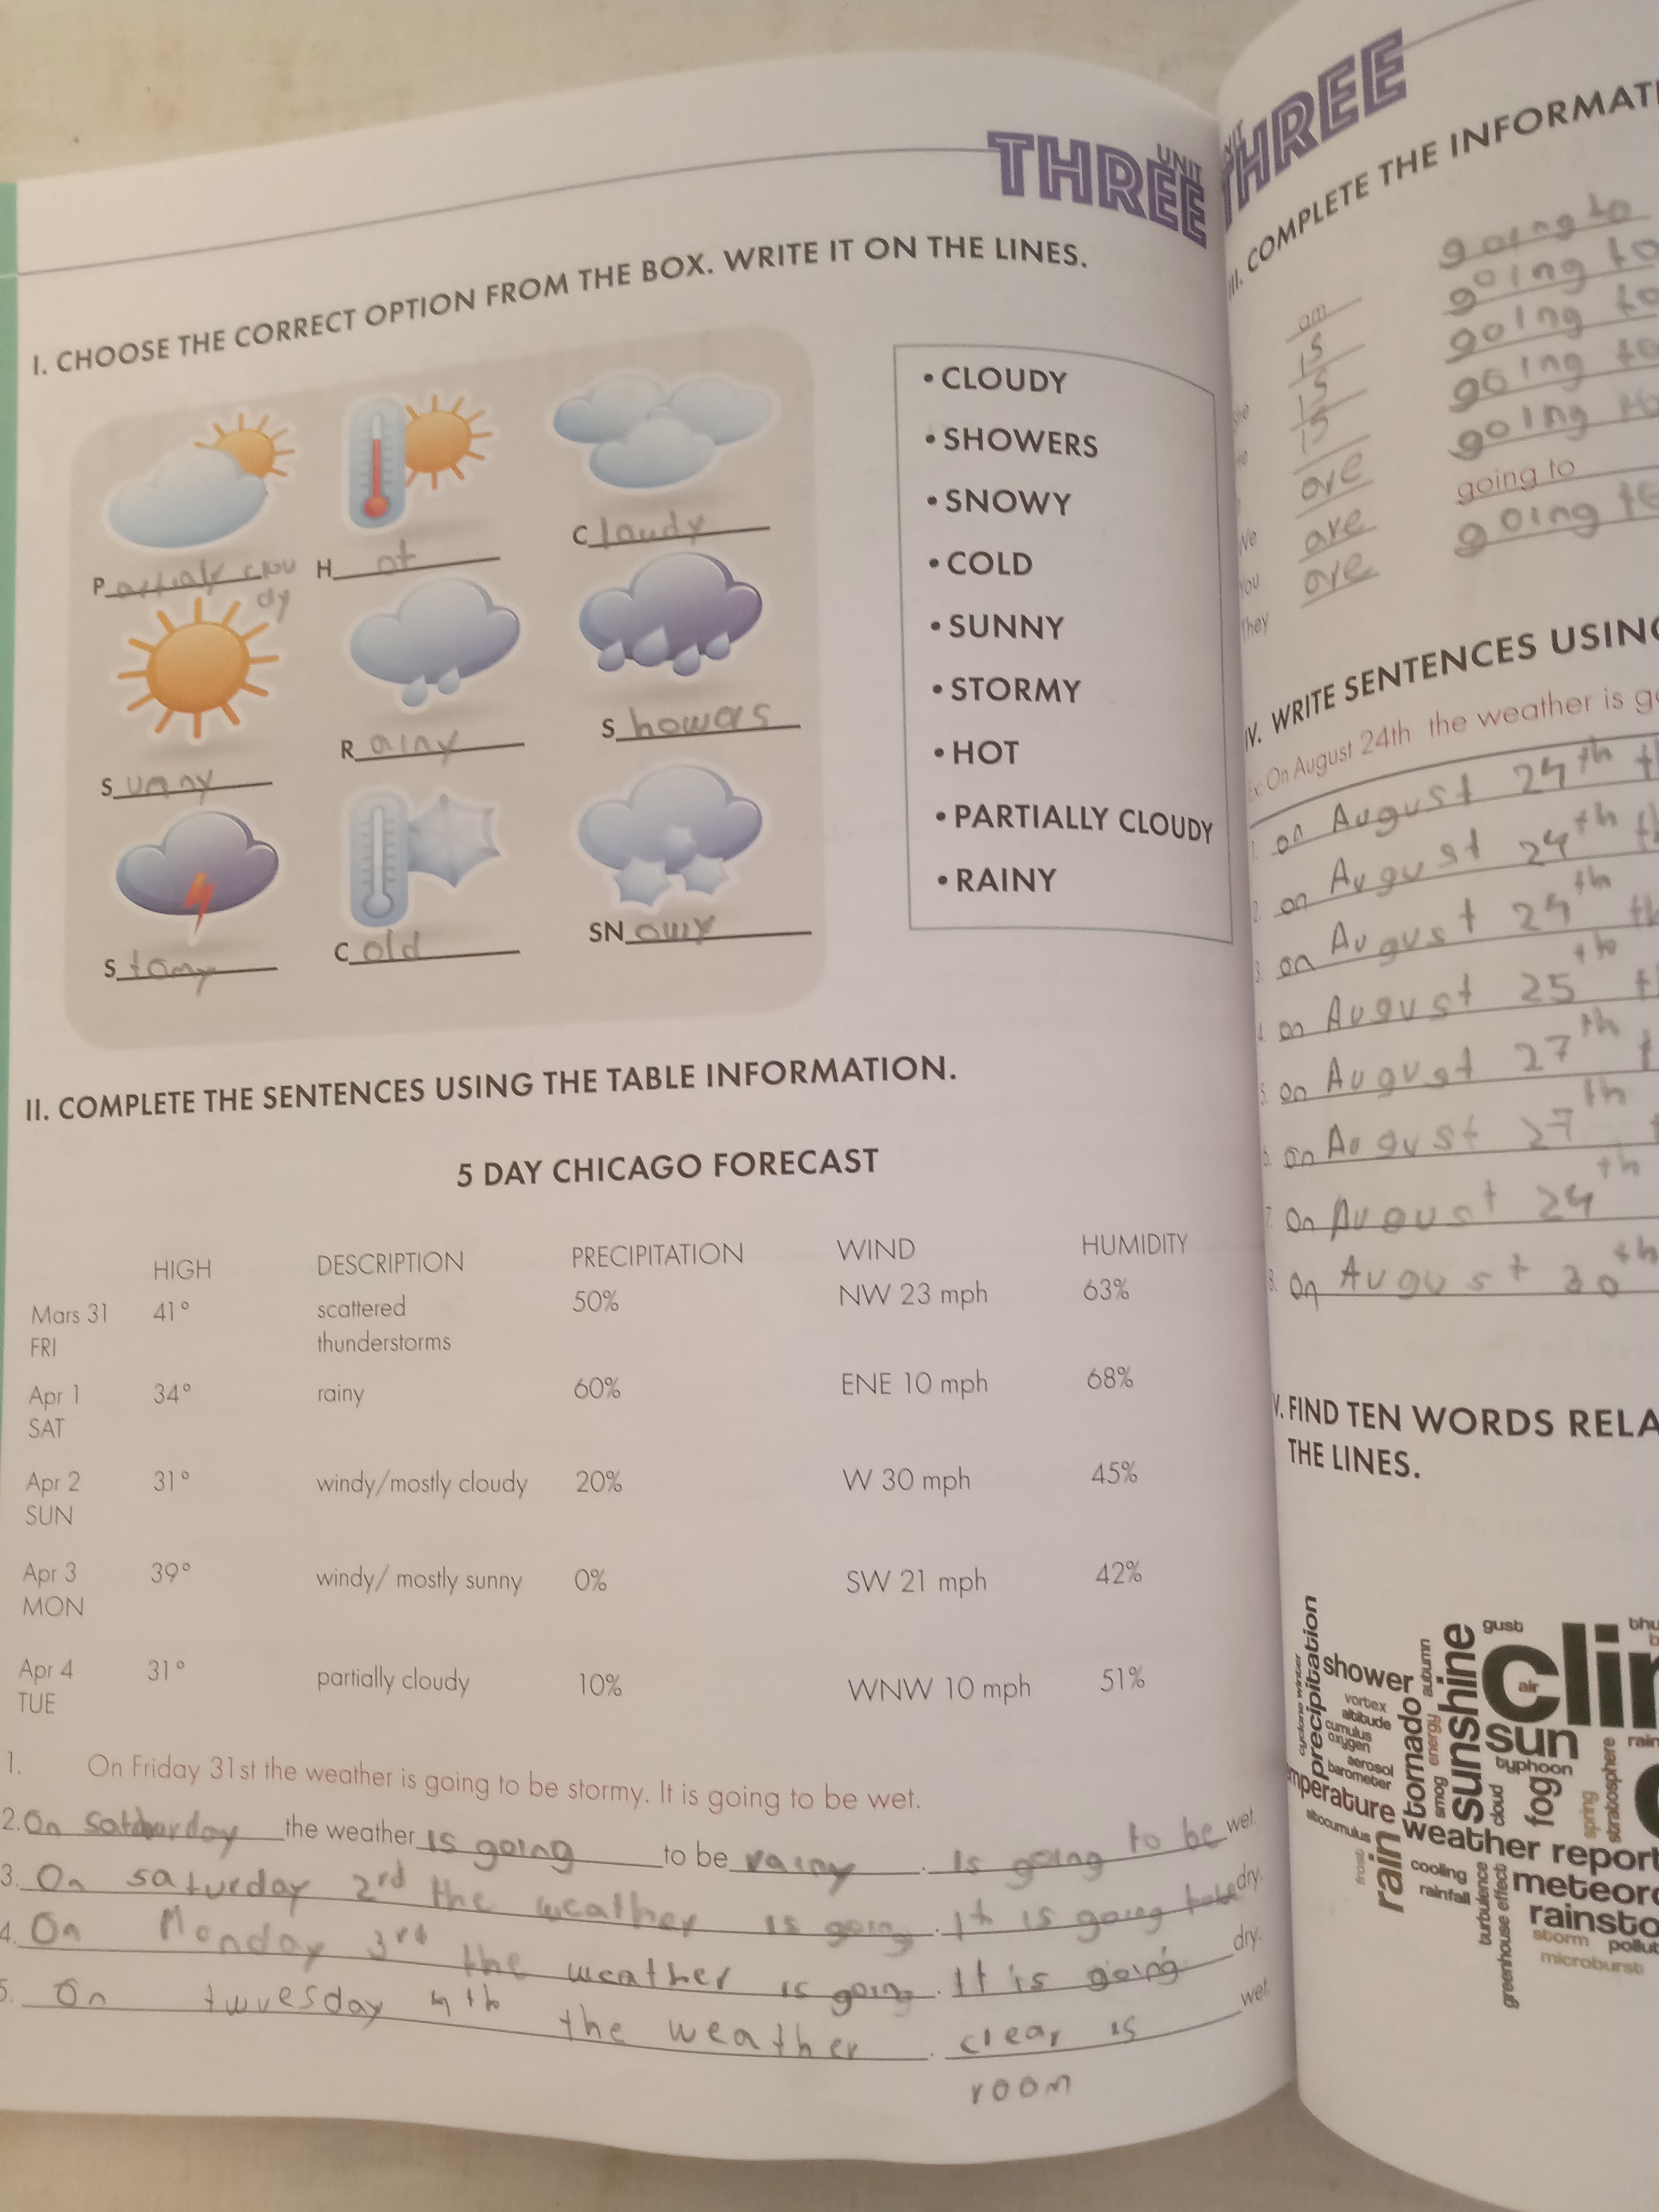 UNIT
THREE
I. CHOOSE THE CORRECT OPTION FROM THE BOX. WRITE IT ON THE LINES.
Partialy clou
dy
Hot
Cloudy
Sunny
Rainy
Showers
Stomy
Cold
SNowy
• CLOUDY
• SHOWERS
• SNOWY
• COLD
• SUNNY
• STORMY
• HOT
• PARTIALLY CLOUDY
• RAINY
II. COMPLETE THE SENTENCES USING THE TABLE INFORMATION.
5 DAY CHICAGO FORECAST
HIGH DESCRIPTION PRECIPITATION WIND HUMIDITY
Mars 31 41° scattered 50% NW 23 mph 63%
FRI thunderstorms
Apr 1 34° rainy 60% ENE 10 mph 68%
SAT
Apr 2 31° windy/mostly cloudy 20% W 30 mph 45%
SUN
Apr 3 39° windy/ mostly sunny 0% SW 21 mph 42%
MON
Apr 4 31° partially cloudy 10% WNW 10 mph 51%
TUE
1. On Friday 31st the weather is going to be stormy. It is going to be wet.
2. On the weather is going to be rainy. Is going to be wet.
3. On saturday 2rd the weather is going. It is going dry.
4. On Monday 3rd the weather is going. It is going dry.
5. On twuesday 4th the weather. clear is wet.
room
THREE
III. COMPLETE THE INFORMATI
am going to
is going to
is going to
is going to
are going to
We are going to
You are going to
They
IV. WRITE SENTENCES USING
Ex. On August 24th the weather is go
1. on August 24th
2. on August 24th
3. on August 24th
4. on August 25th
5. on August 27th
6. on August 27th
7. On August 24th
8. On August 30th
V. FIND TEN WORDS RELA
THE LINES.
gust
shower
precipitation
cyclone winter
vortex
altitude
cumulus
oxygen
aerosol
barometer
mperature
altocumulus
tornado
autumn
energy
smog
sunshine
clim
air
sun
rain
typhoon
cloud
fog
spring
stratosphere
weather report
frost
rain
cooling
rainfall
turbulence
greenhouse effect
meteoro
rainsto
storm
pollut
microburst